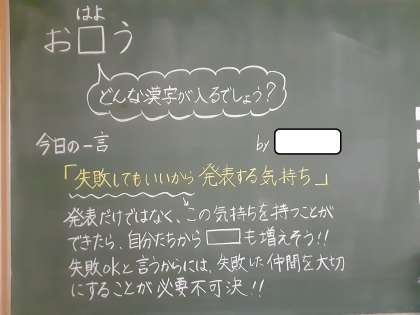 はよ
お□う
どんな漢字が入るでしょう?
今日の一言 by
「失敗してもいいから発表する気持ち」
発表だけではなく、この気持ちを持つことが
できたら、自分たちから□も増えそう!!
失敗okと言うからには、失敗した仲間を大切
にすることが必要不可決!!